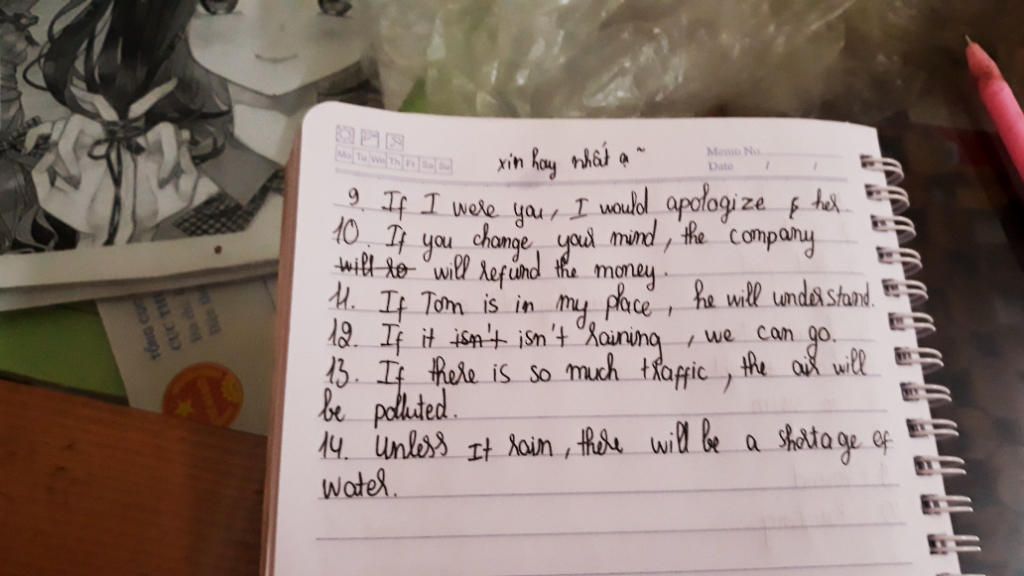 Mo Tu We Th Fr Sa Su
xin hay nhất ạ ~
Memo No.
Date / /
9. If I were you, I would apologize her
10. If you change your mind, the company
will re will refund the money.
11. If Tom is in my place, he will understand.
12. If it isn't isn't raining, we can go.
13. If there is so much traffic, the air will
be polluted.
14. Unless It rain, there will be a shortage of
water.